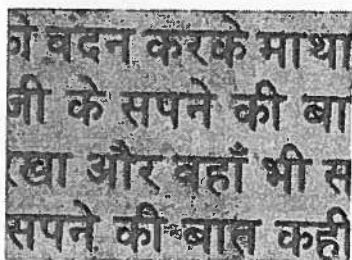 को वंदन करके माथा
जी के सपने की बा
रखा और वहाँ भी स
सपने की बात कही